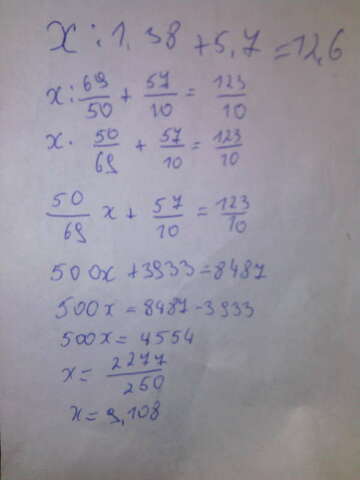 x : 1,38 + 5,7 = 12,6
x : 69/50 + 57/10 = 123/10
x · 50/69 + 57/10 = 123/10
50/69 x + 57/10 = 123/10
500x + 3933 = 8487
500x = 8487 - 3933
500x = 4554
x = 2277/250
x = 9,108